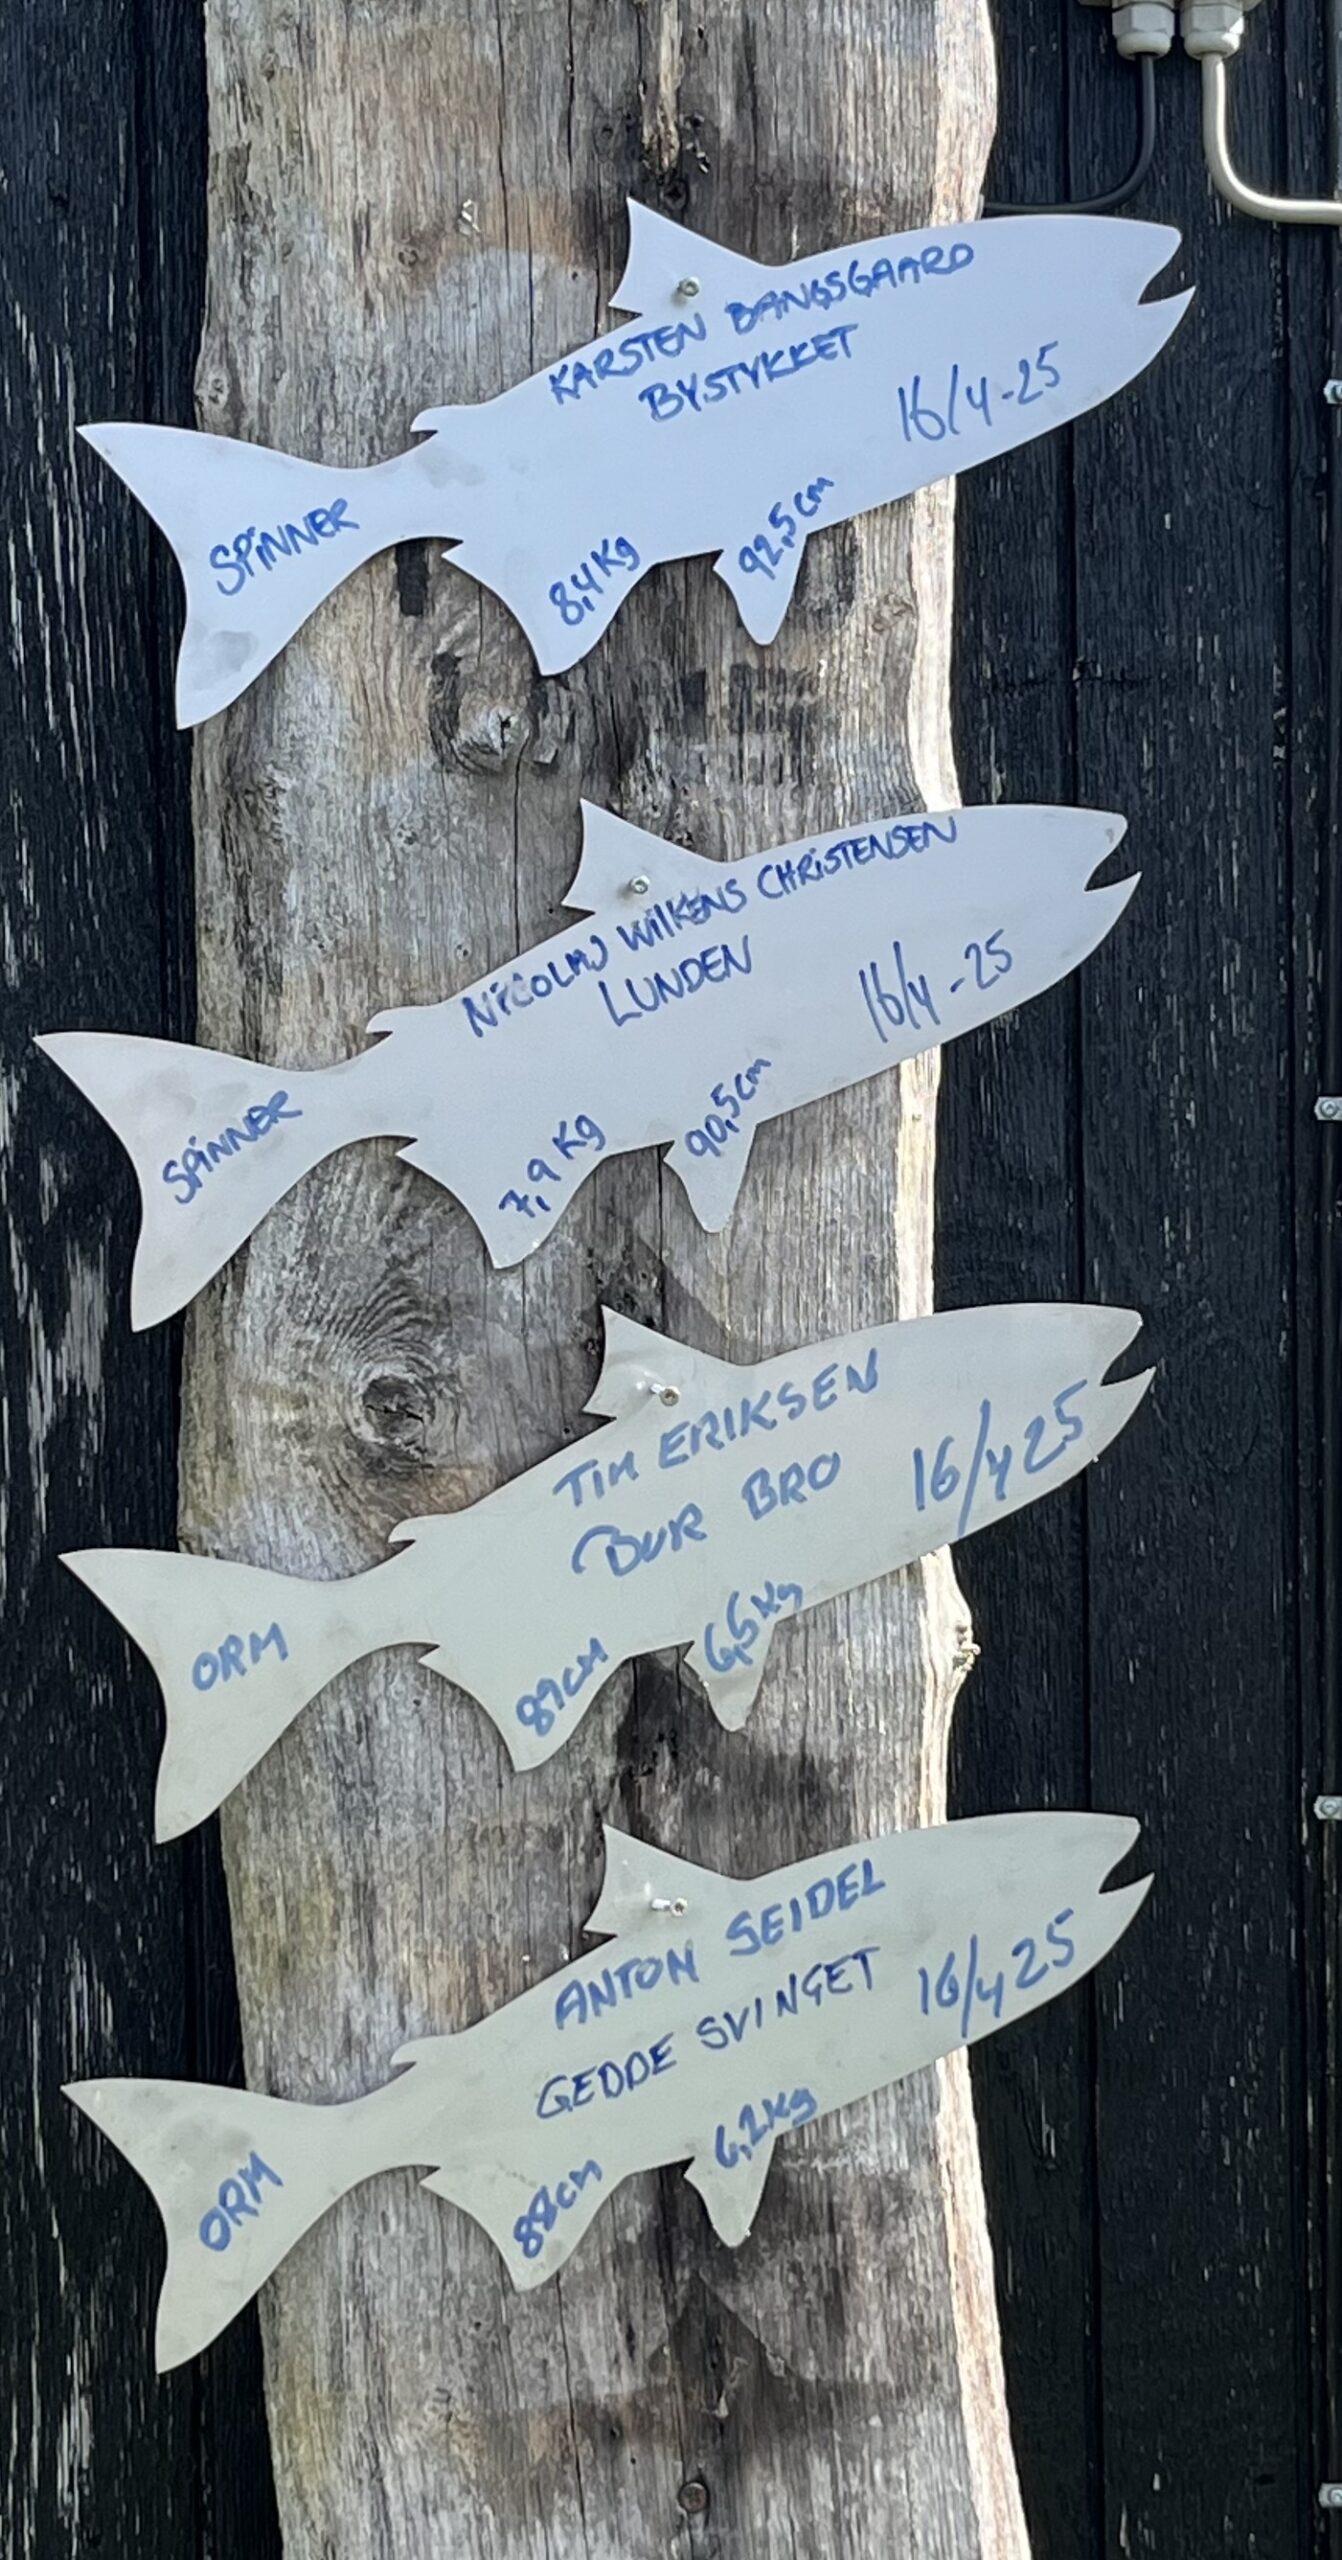 KARSTEN BANGSGAARD
BYSTYKKET
16/4-25
SPINNER
8,4 Kg
92,5 cm
NICOLAJ WILKENS CHRISTENSEN
LUNDEN
16/4-25
SPINNER
7,9 Kg
90,5 cm
TIM ERIKSEN
BUR BRO
16/4 25
ORM
89 cm
6,5 Kg
ANTON SEIDEL
GEDDE SVINGET
16/4 25
ORM
88 cm
6,2 Kg